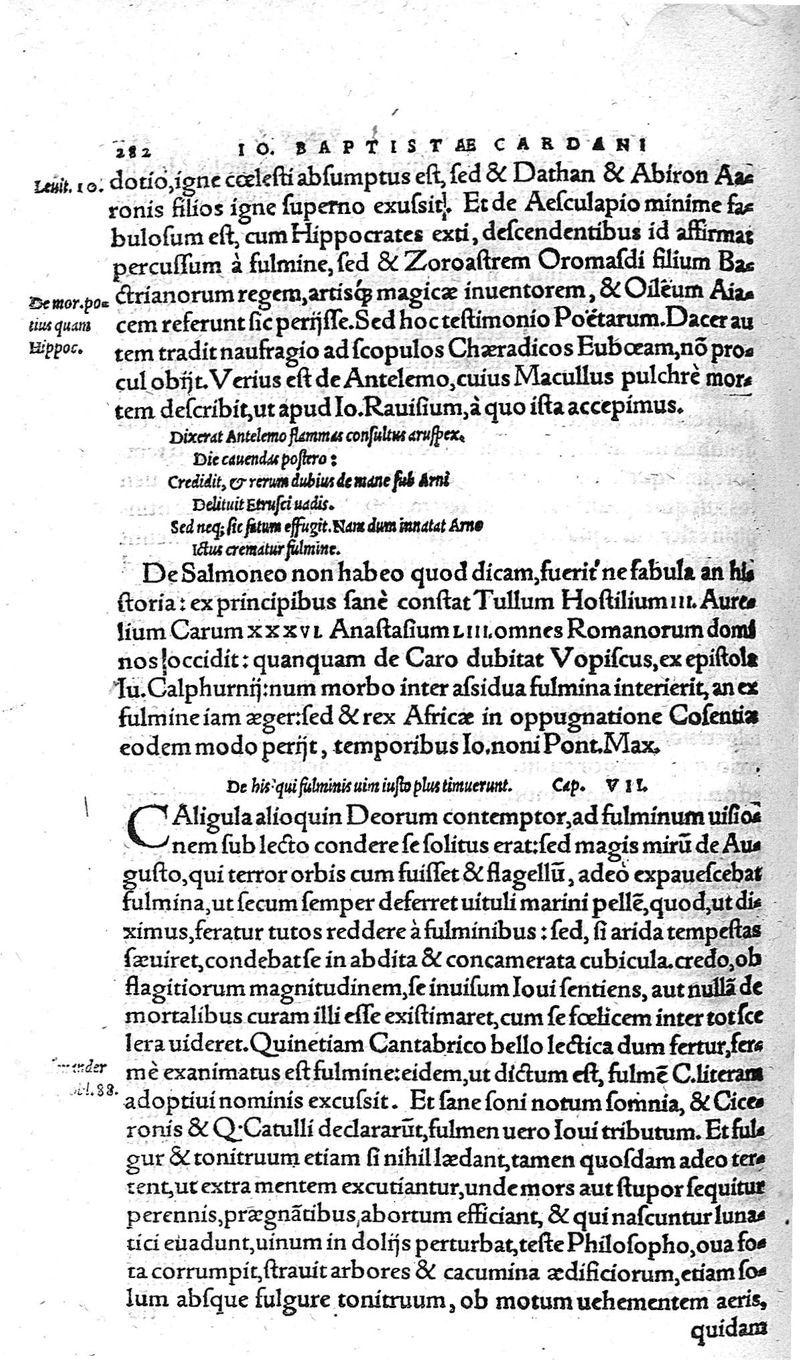 282 IO. BAPTISTAE CARDANI
Leuit. 10. dotio, igne cœlesti absumptus est, sed & Dathan & Abiron Aa=
ronis filios igne superno exussit. Et de Aesculapio minime fa=
bulosum est, cum Hippocrates exti, descendentibus id affirmat
percussum à fulmine, sed & Zoroastrem Oromasdi filium Ba=
De mor. po=
tius quam
Hippoc.
ctrianorum regem, artisq́; magicæ inuentorem, & Oilëum Aia=
cem referunt sic perijsse. Sed hoc testimonio Poëtarum. Dacer au
tem tradit naufragio ad scopulos Chæradicos Eubœam, nõ pro=
cul obijt. Verius est de Antelemo, cuius Macullus pulchrè mor=
tem describit, ut apud Io. Rauisium, à quo ista accepimus.
Dixerat Antelemo flammas consultus aruspex,
Die cauendas postero:
Credidit, & rerum dubius de mane sub Arni
Delituit Etrusci uadis.
Sed neq; sic fatum effugit. Nam dum innatat Arno
Ictus crematur fulmine.
De Salmoneo non habeo quod dicam, fuerit'ne fabula an hi
storia: ex principibus sanè constat Tullum Hostilium III. Aure=
lium Carum XXXVI. Anastasium LIII. omnes Romanorum domi
nos occidit: quanquam de Caro dubitat Vopiscus, ex epistola
Iu. Calphurnij: num morbo inter assidua fulmina interierit, an ex
fulmine iam æger: sed & rex Africæ in oppugnatione Cosentiæ
eodem modo perijt, temporibus Io. noni Pont. Max.
De his qui fulminis uim iusto plus timuerunt. Cap. VII.
CAligula alioquin Deorum contemptor, ad fulminum uisio=
nem sub lecto condere se solitus erat: sed magis mirũ de Au=
gusto, qui terror orbis cum fuisset & flagellũ, adeò expauescebat
fulmina, ut secum semper deferret uituli marini pellẽ, quod, ut di=
ximus, feratur tutos reddere à fulminibus: sed, si arida tempestas
sæuiret, condebat se in abdita & concamerata cubicula. credo, ob
flagitiorum magnitudinem, se inuisum Ioui sentiens, aut nullã de
mortalibus curam illi esse existimaret, cum se fœlicem inter tot sce
lera uideret. Quinetiam Cantabrico bello lectica dum fertur, fer=
mè exanimatus est fulmine: eidem, ut dictum est, fulmẽ C. literam
88.
adoptiui nominis excussit. Et sane soni notum somnia, & Cice=
ronis & Q. Catulli declararũt, fulmen uero Ioui tributum. Et ful=
gur & tonitruum etiam si nihil lædant, tamen quosdam adeo ter=
rent, ut extra mentem excutiantur, unde mors aut stupor sequitur
perennis, prægnãtibus abortum efficiant, & qui nascuntur luna=
tici euadunt, uinum in dolijs perturbat, teste Philosopho, oua fo=
ta corrumpit, strauit arbores & cacumina ædificiorum, etiam so=
lum absque fulgure tonitruum, ob motum uehementem aeris,
quidam